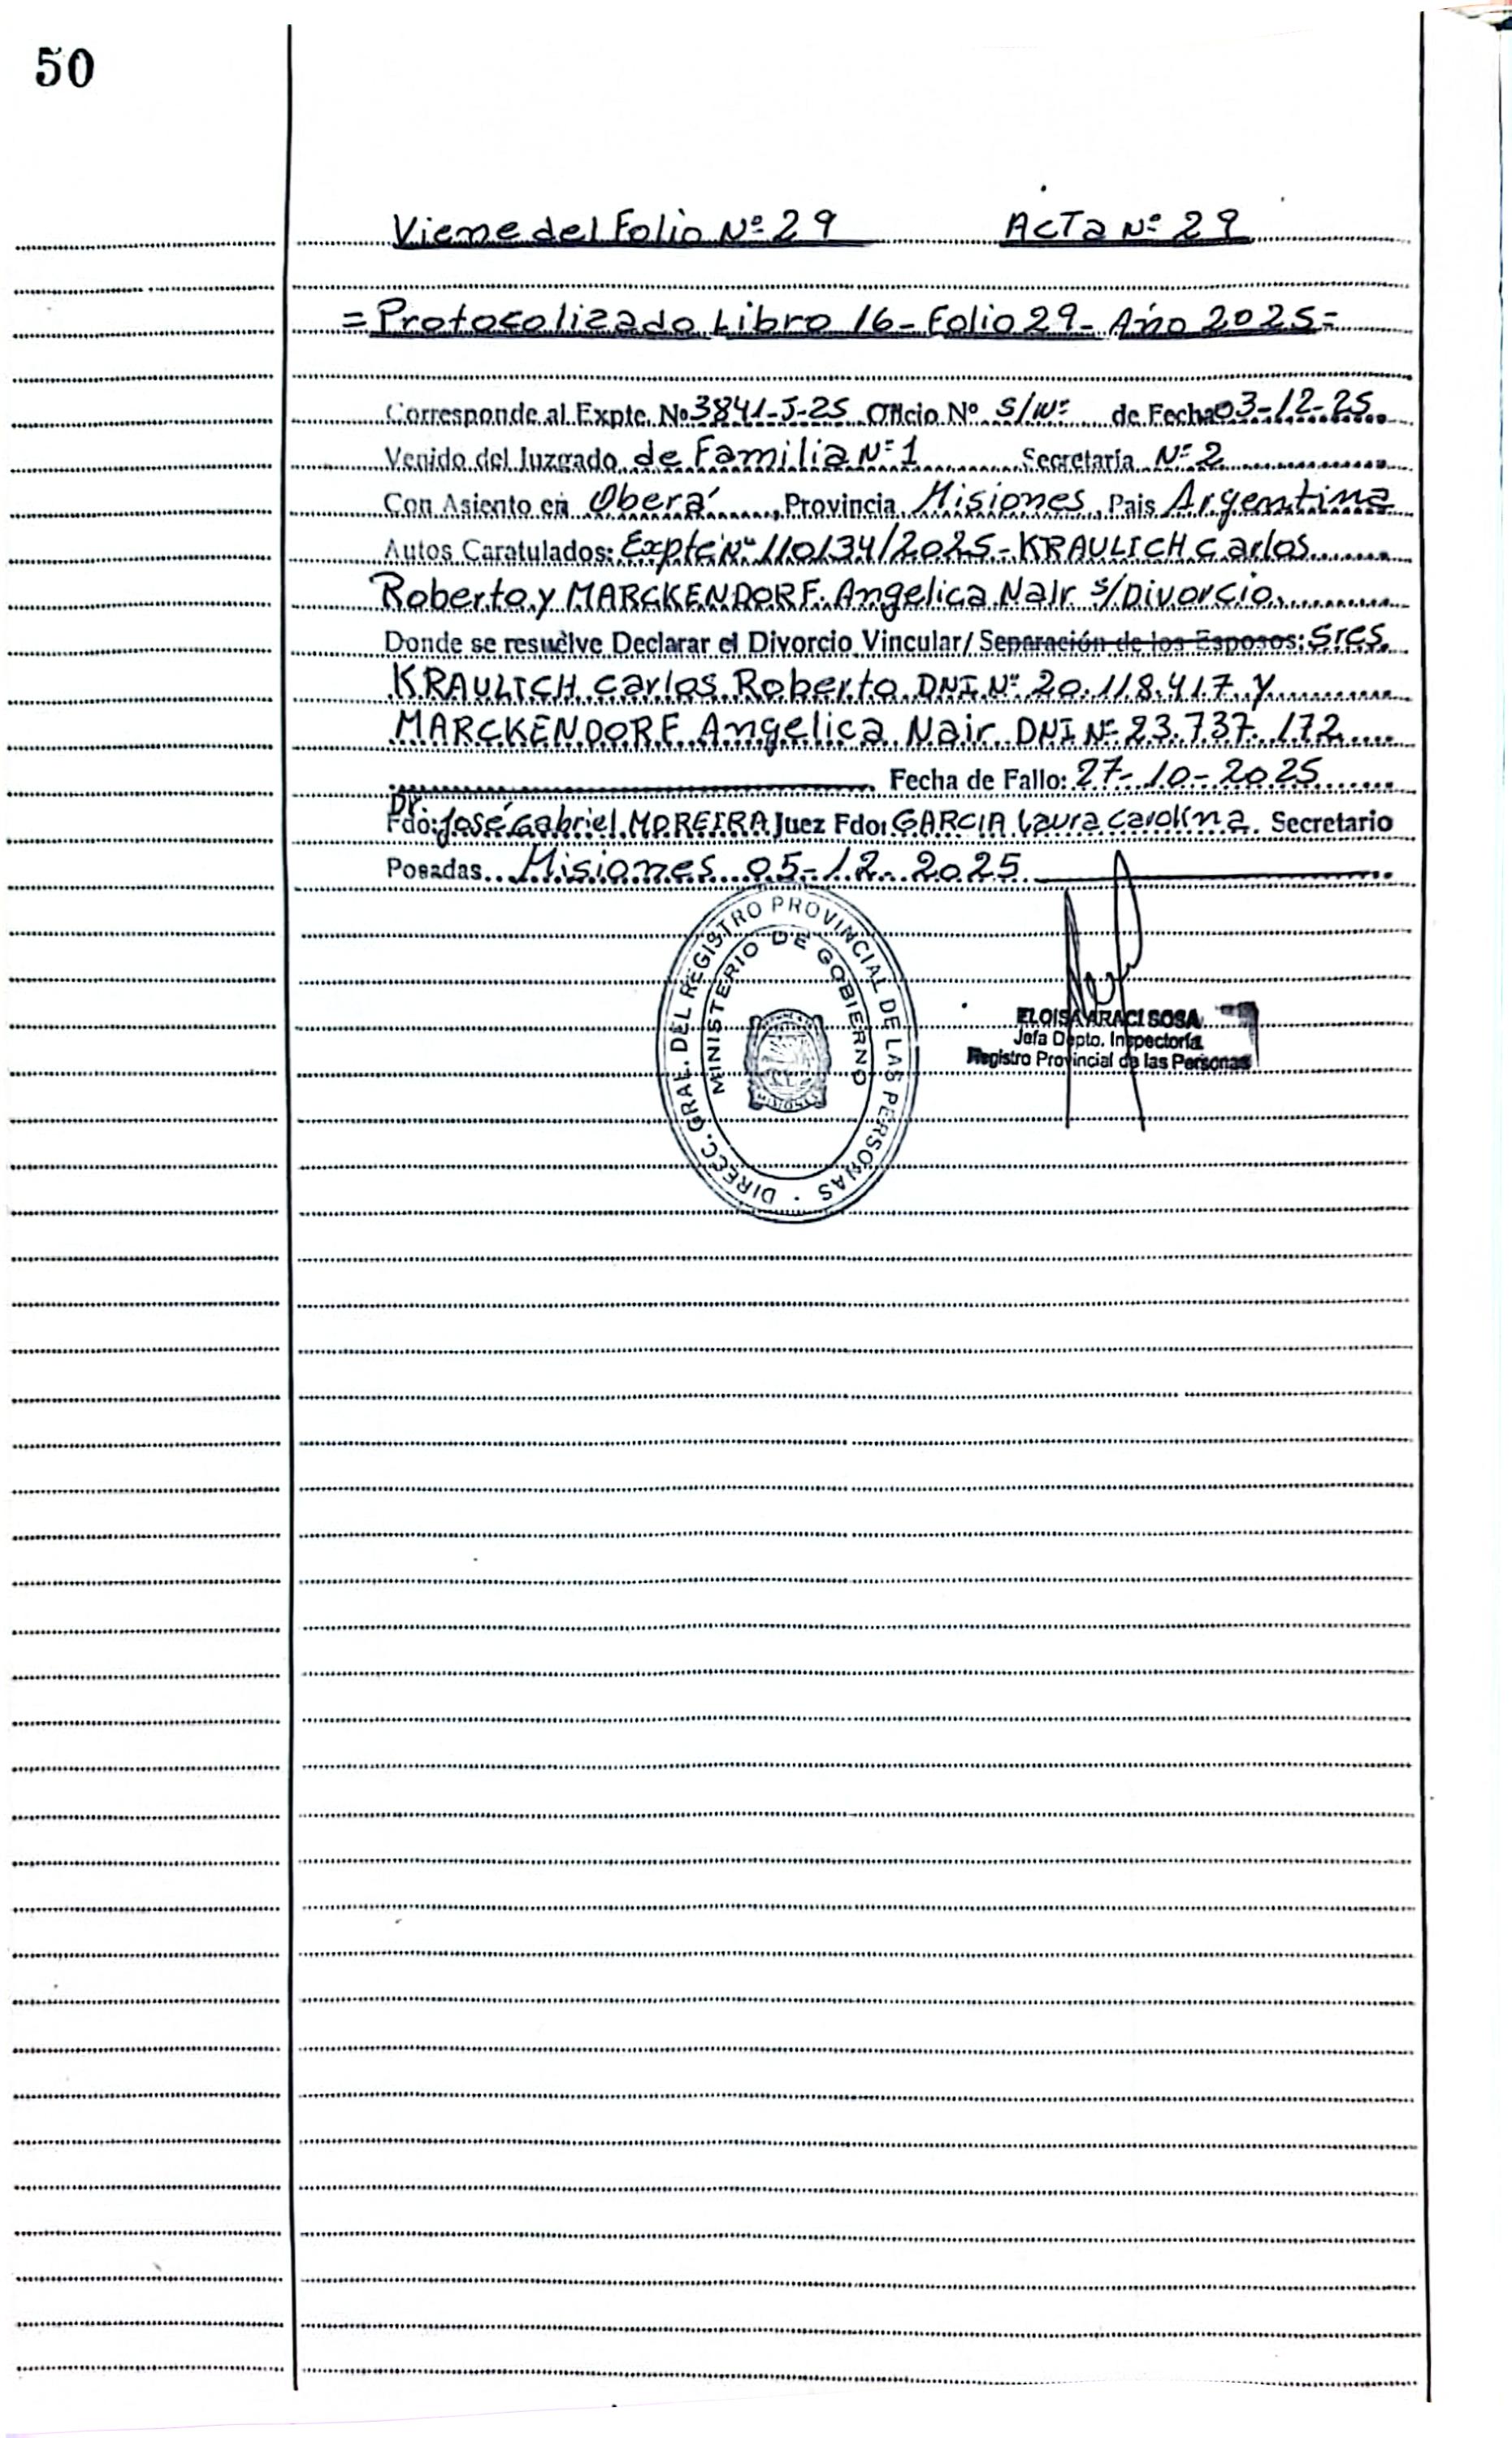 50
Viene del Folio Nº 29 Acta Nº 29
= Protocolizado Libro 16 - Folio 29 - Año 2025 =
Corresponde al Expte. Nº 3841-J-25 Oficio Nº S/Nº de Fecha 03-12-25
Venido del Juzgado de Familia Nº 1 Secretaria Nº 2
Con Asiento en Oberá, Provincia Misiones, Pais Argentina
Autos Caratulados: Expte Nº 110134/2025 - KRAULICH Carlos
Roberto y MARCKENDORF Angelica Nair s/Divorcio
Donde se resuelve Declarar el Divorcio Vincular/ Separación de los Esposos: Sres.
KRAULICH Carlos Roberto DNI Nº 20.118.417 y
MARCKENDORF Angelica Nair DNI Nº 23.737.172
Fecha de Fallo: 27-10-2025
Fdo: Dr. José Gabriel MOREIRA Juez Fdo: GARCIA Laura Carolina. Secretario
Posadas Misiones 05-12-2025
DIRECC. GRAL. DEL REGISTRO PROVINCIAL DE LAS PERSONAS
MINISTERIO DE GOBIERNO
MISIONES
ELOISA ARACI SOSA
Jefa Depto. Inspectoría
Registro Provincial de las Personas